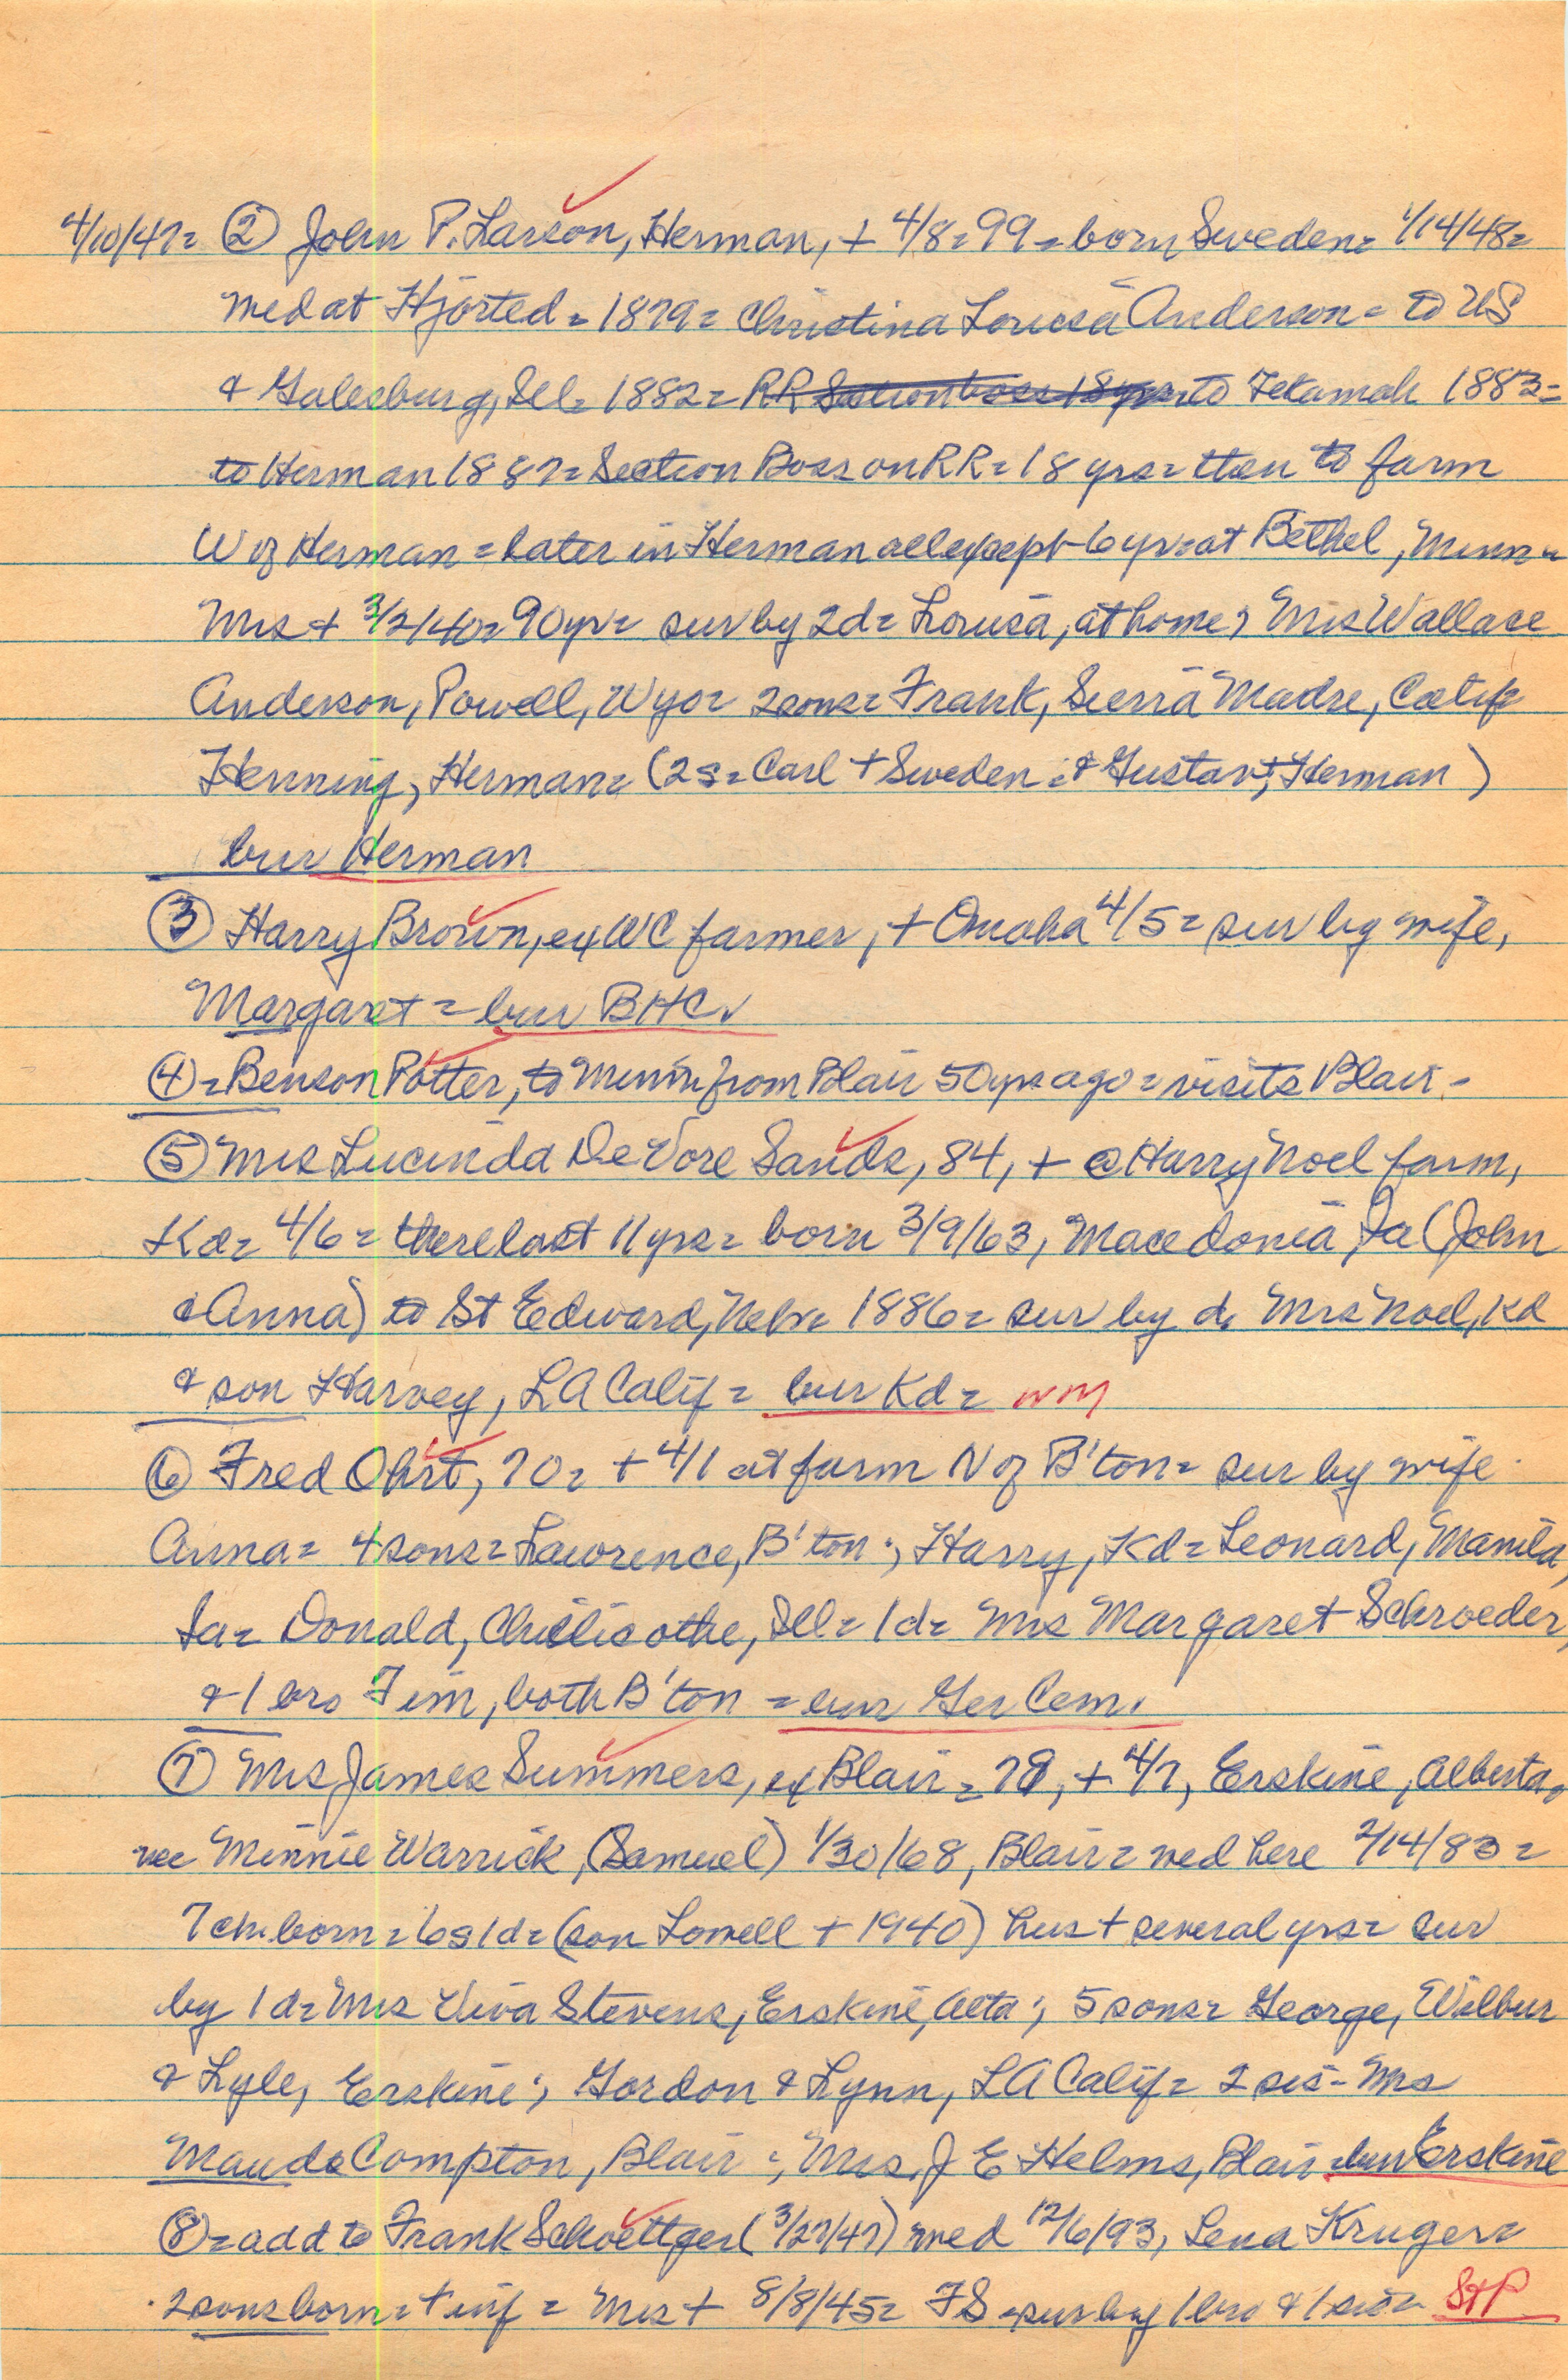 4/10/47= ② John P. Larson, Herman, + 4/8=99=born Sweden= 1/14/48=
wed at Hjorted = 1879= Christina Lousia Anderson= to US
& Galesburg, Ill= 1882= RR Section boss 18 yrs= to Tekamah 1883=
to Herman 1887= Section Boss on RR= 18 yrs= then to farm
W of Herman = later in Herman all except 6 yrs at Bethel, Minn=
Mrs + 3/2/40= 90yr= sur by 2d= Lousia, at home; Mrs Wallace
Anderson, Powell, Wyo= 2sons= Frank, Sierra Madre, Calif
Henning, Herman= (2s= Carl + Sweden = & Gustav +, Herman)
bur Herman
③ Harry Brown, ex WC farmer, + Omaha 4/5= sur by wife,
Margaret = bur BHC.
④=Benson Potter, to Minn from Blair 50yrs ago = visits Blair-
⑤ Mrs Lucinda DeVore Sands, 84, + @ Harry Noel farm,
Kd= 4/6= there last 11 yrs= born 3/9/63, Macedonia, Ia (John
& Anna) to St Edward, Nebr= 1886= sur by d. Mrs Noel, Kd
& son Harvey, LA Calif= bur Kd= WM
⑥ Fred Ohrt, 70= + 4/1 at farm N of B'ton= sur by wife
Anna= 4 sons= Lawrence, B'ton; Harry, Kd= Leonard, Manila,
Ia= Donald, Chillicothe, Ill= 1d= Mrs Margaret Schroeder,
& 1 bro Tim, both B'ton = bur Ger Cem.
⑦ Mrs James Summers, ex Blair= 78, + 4/7, Erskine, Alberta,
nee Minnie Warrick, (Samuel) 1/30/68, Blair= wed here 2/14/83=
7 ch. born= 6s 1d= (son Lowell + 1940) hus + several yrs= sur
by 1d= Mrs Viva Stevens, Erskine, Alta; 5 sons= George, Wilbur
& Lyle, Erskine; Gordon & Lynn, LA Calif= 2 sis- Mrs
Maude Compton, Blair; Mrs. J E Helms, Blair= bur Erskine
⑧=add to Frank Schoettger (3/27/47) wed 12/6/93, Lena Kruger=
2 sons born= + inf = Mrs + 8/8/45= FS =sur by 1 bro & 1 sis= StP